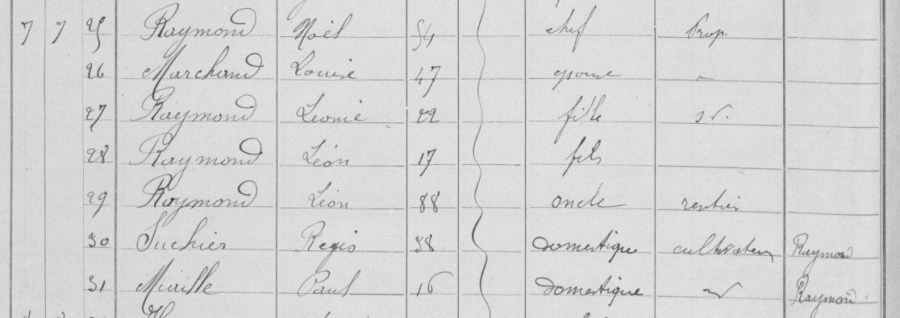 7 7 25 Raymond Noël 54 chef Prop.
26 Marchand Louise 47 épouse ~
27 Raymond Léonie 22 fille s.p.
28 Raymond Léon 17 fils
29 Raymond Léon 88 oncle rentier
30 Suchier Regis 38 domestique cultivateur Raymond
31 Paul 16 domestique Raymond